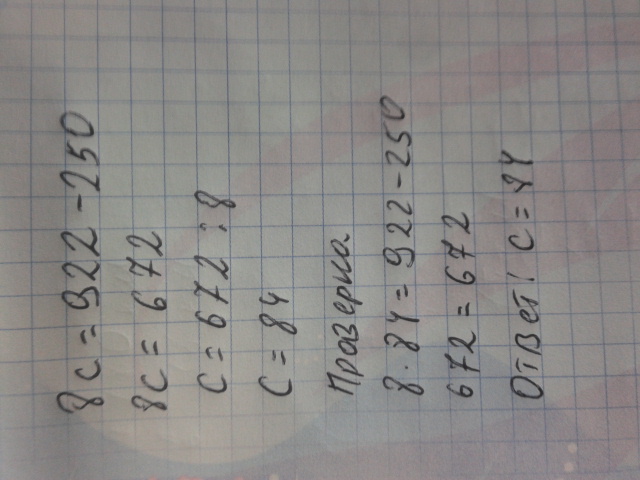 8c = 922 - 250
8c = 672
c = 672 : 8
c = 84
Проверка
8 · 84 = 922 - 250
672 = 672
Ответ: c = 84